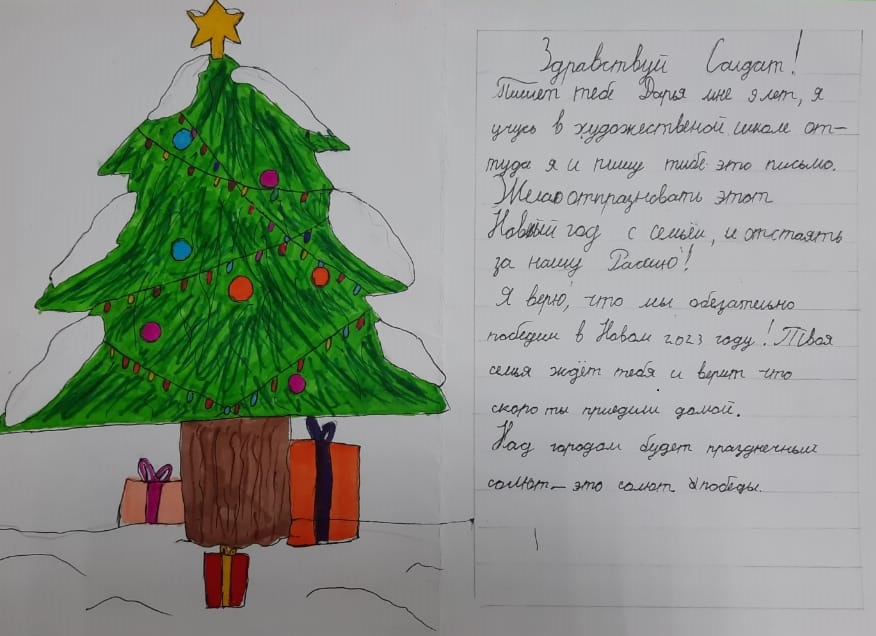 Здравствуй Солдат!
Пишет тебе Дарья мне 9 лет, я
учусь в художественой школе от-
туда я и пишу тибе это письмо.
Желаю отпразновать этот
Новый год с семьёй, и отстоять
за нашу Рассию!
Я верю, что мы обезательно
победим в Новом 2023 году! Твоя
семья ждёт тебя и верит что
скоро ты приедиш домой.
Над городом будет праздничный
салют – это салют победы.